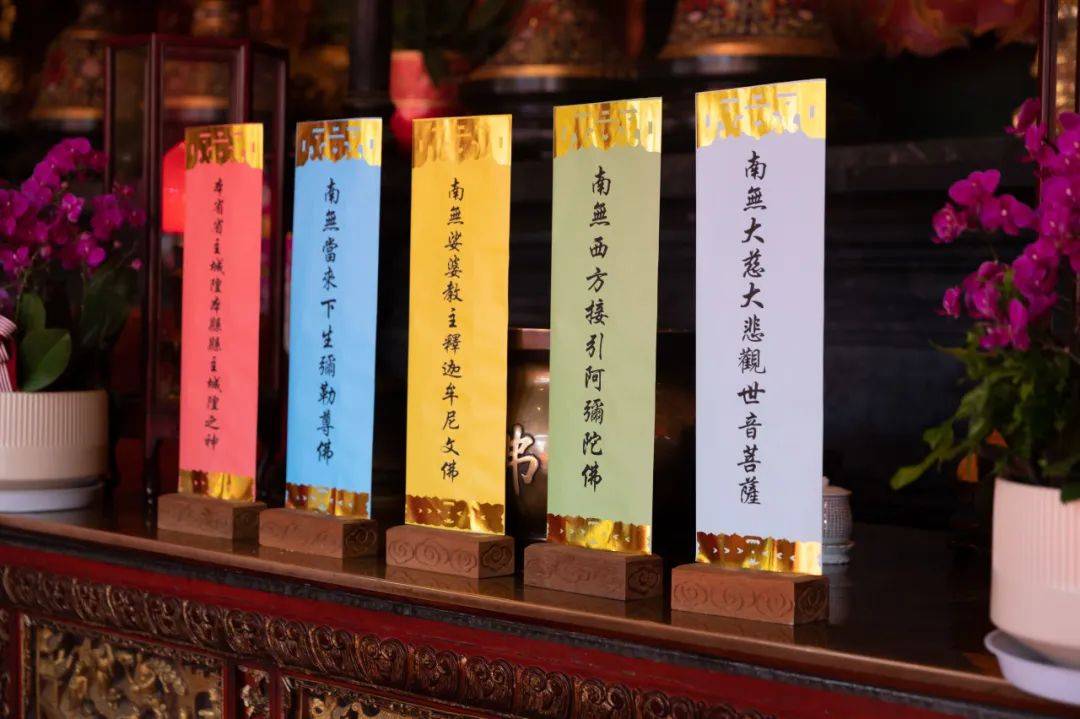 本省省主城隍本縣縣主城隍之神
南無當來下生彌勒尊佛
南無娑婆教主釋迦牟尼文佛
南無西方接引阿彌陀佛
南無大慈大悲觀世音菩薩
佛